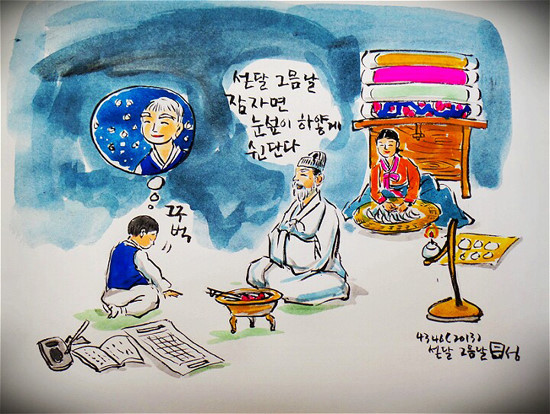 섣달 그믐날
잠자면
눈섶이 하얗게
쉰단다
꾸
벅
4346(2013)
섣달 그믐날